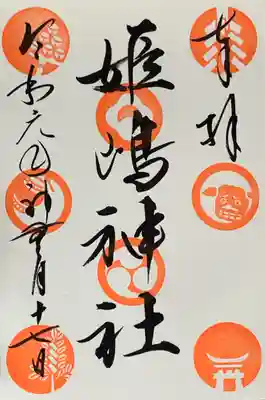 奉拝
姫嶋神社
令和元年十一月十七日